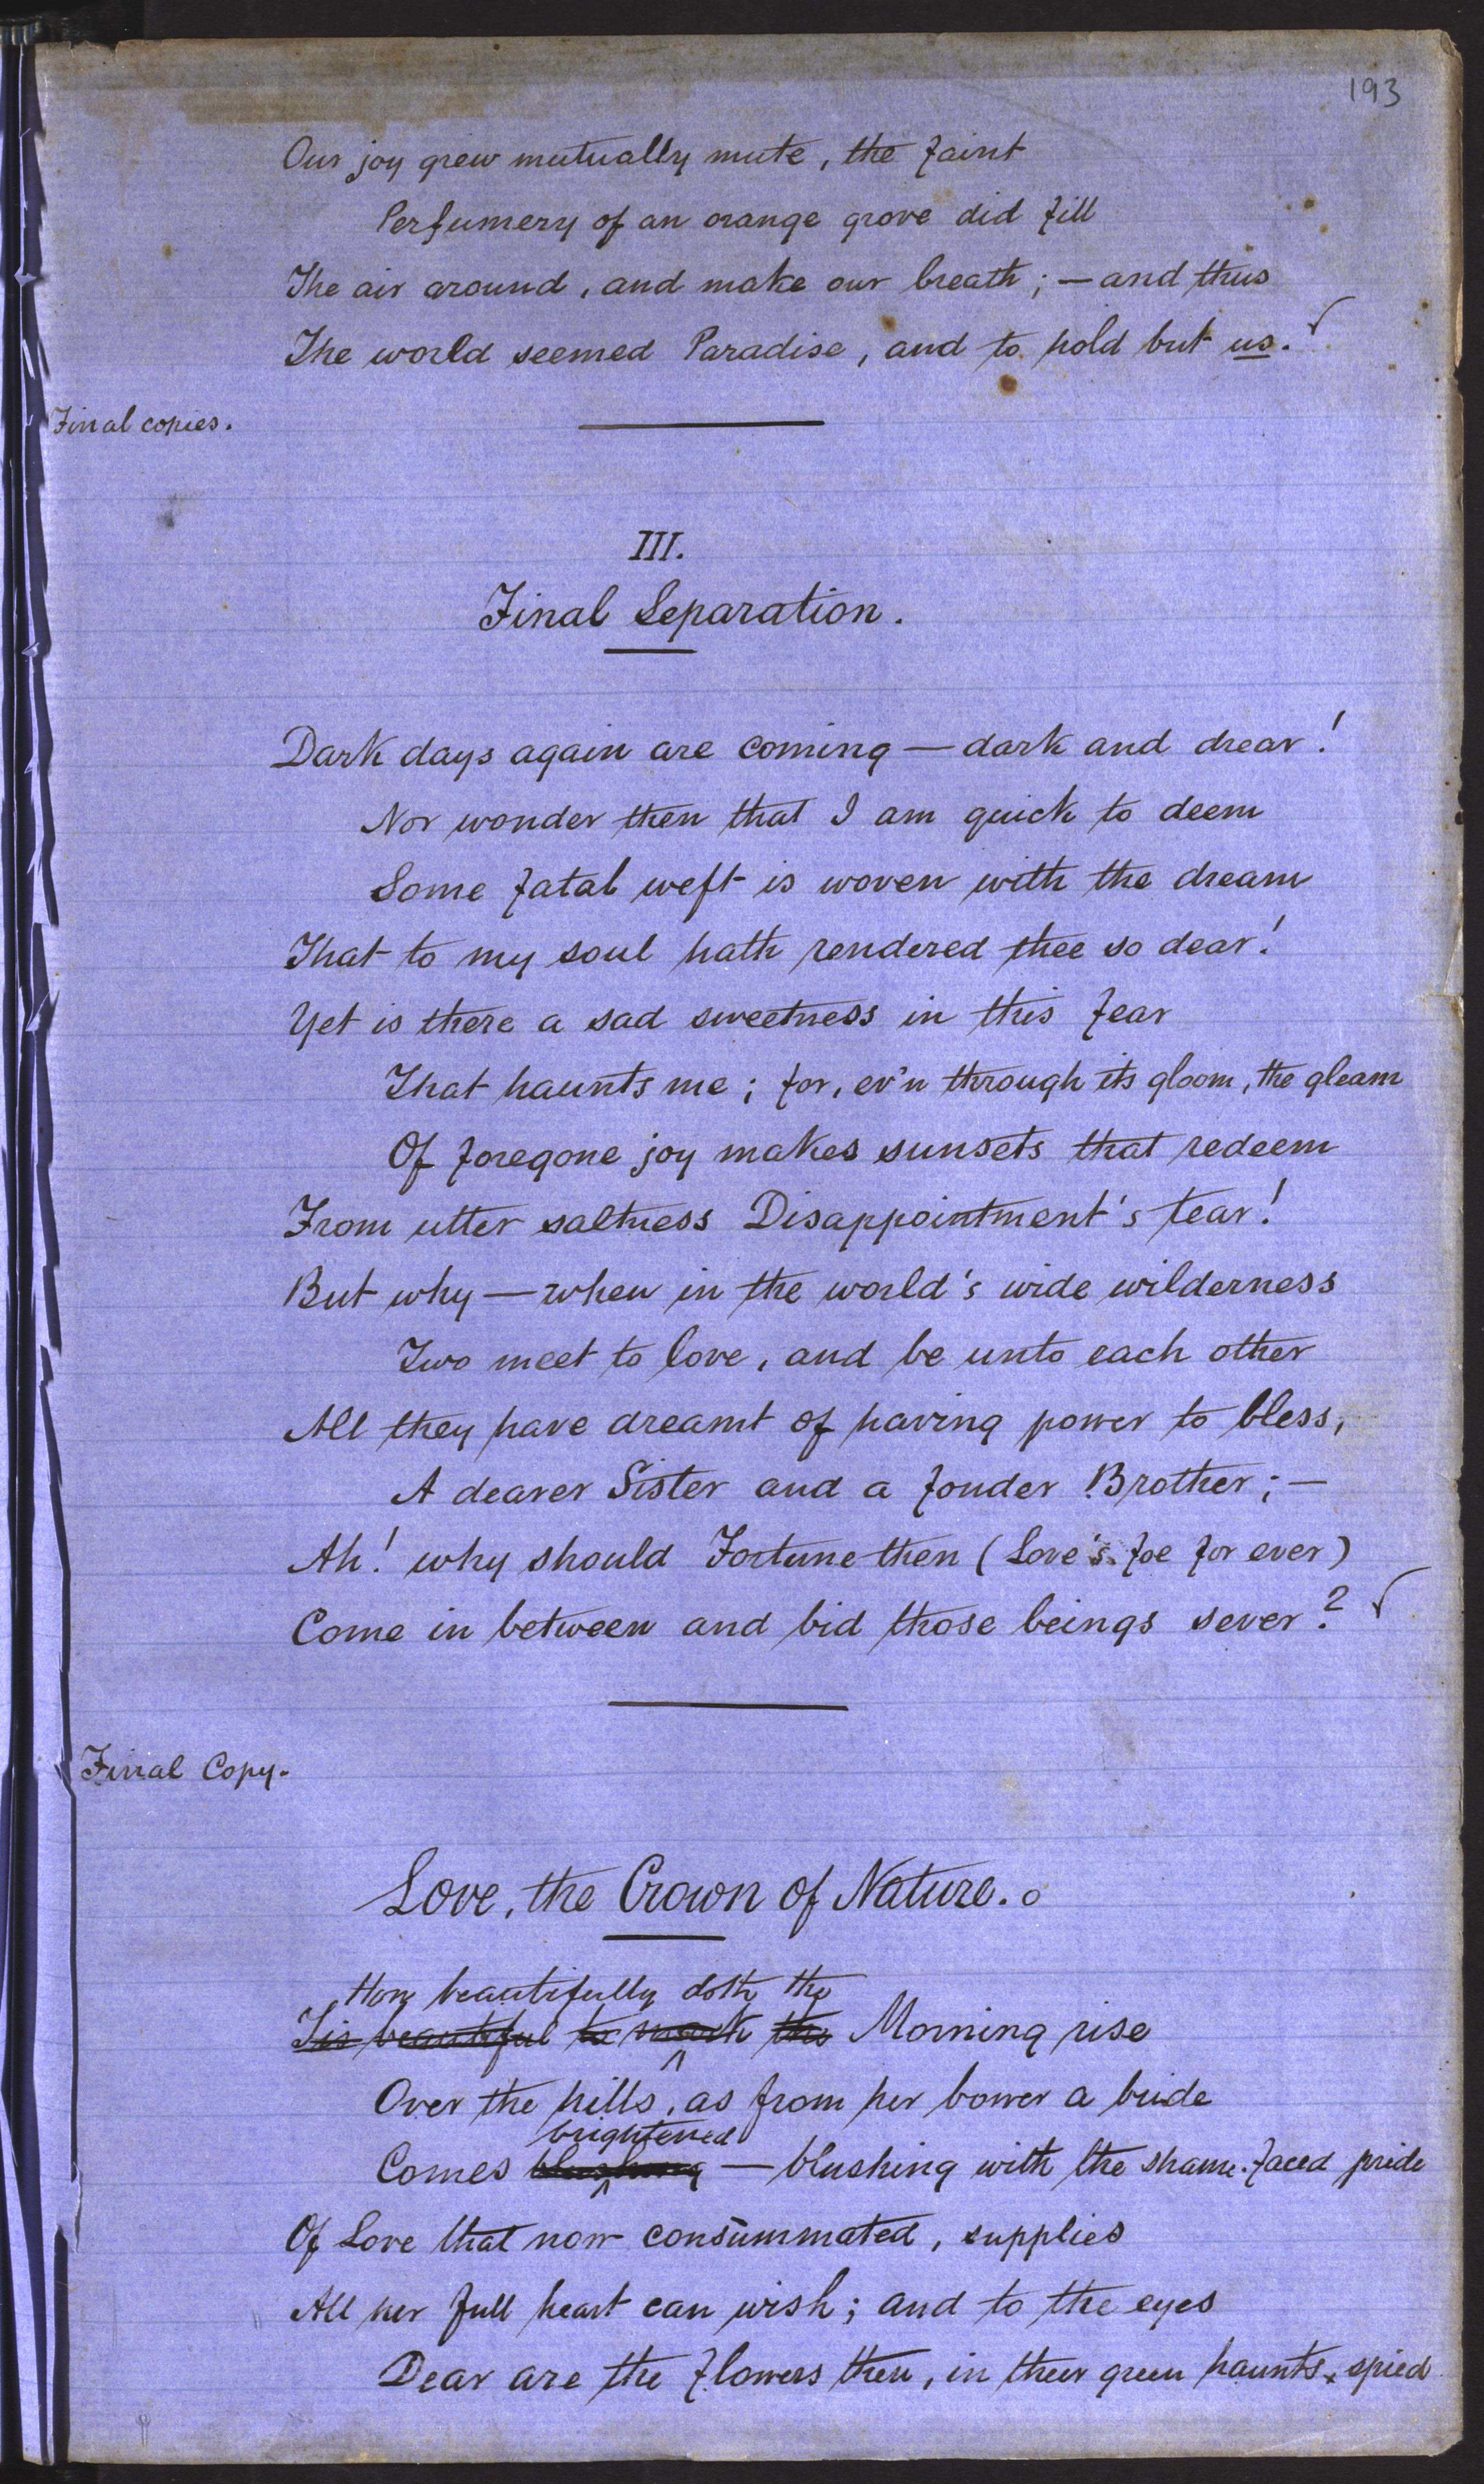 193
Our joy grew mutually mute, the faint
Perfumery of an orange grove did fill
The air around, and make our breath; — and thus
The world seemed Paradise, and to hold but us.
Final copies.
III.
Final Separation.
Dark days again are coming — dark and drear!
Nor wonder then that I am quick to deem
Some fatal weft is woven with the dream
That to my soul hath rendered thee so dear!
Yet is there a sad sweetness in this fear
That haunts me; for, ev'n through its gloom, the gleam
Of foregone joy makes sunsets that redeem
From utter saltness Disappointment's tear!
But why — when in the world's wide wilderness
Two meet to love, and be unto each other
All they have dreamt of having power to bless,
A dearer Sister and a fonder Brother; —
Ah! why should Fortune then (Love's foe for ever)
Come in between and bid those beings sever?
Final Copy.
Love, the Crown of Nature.
How beautifully doth the
Tis beautiful to mark the Morning rise
Over the hills, as from her bower a bride
brightened
Comes blushing — blushing with the shame-faced pride
Of Love that now consummated, supplies
All her full heart can wish; and to the eyes
Dear are the flowers then, in their green haunts spied